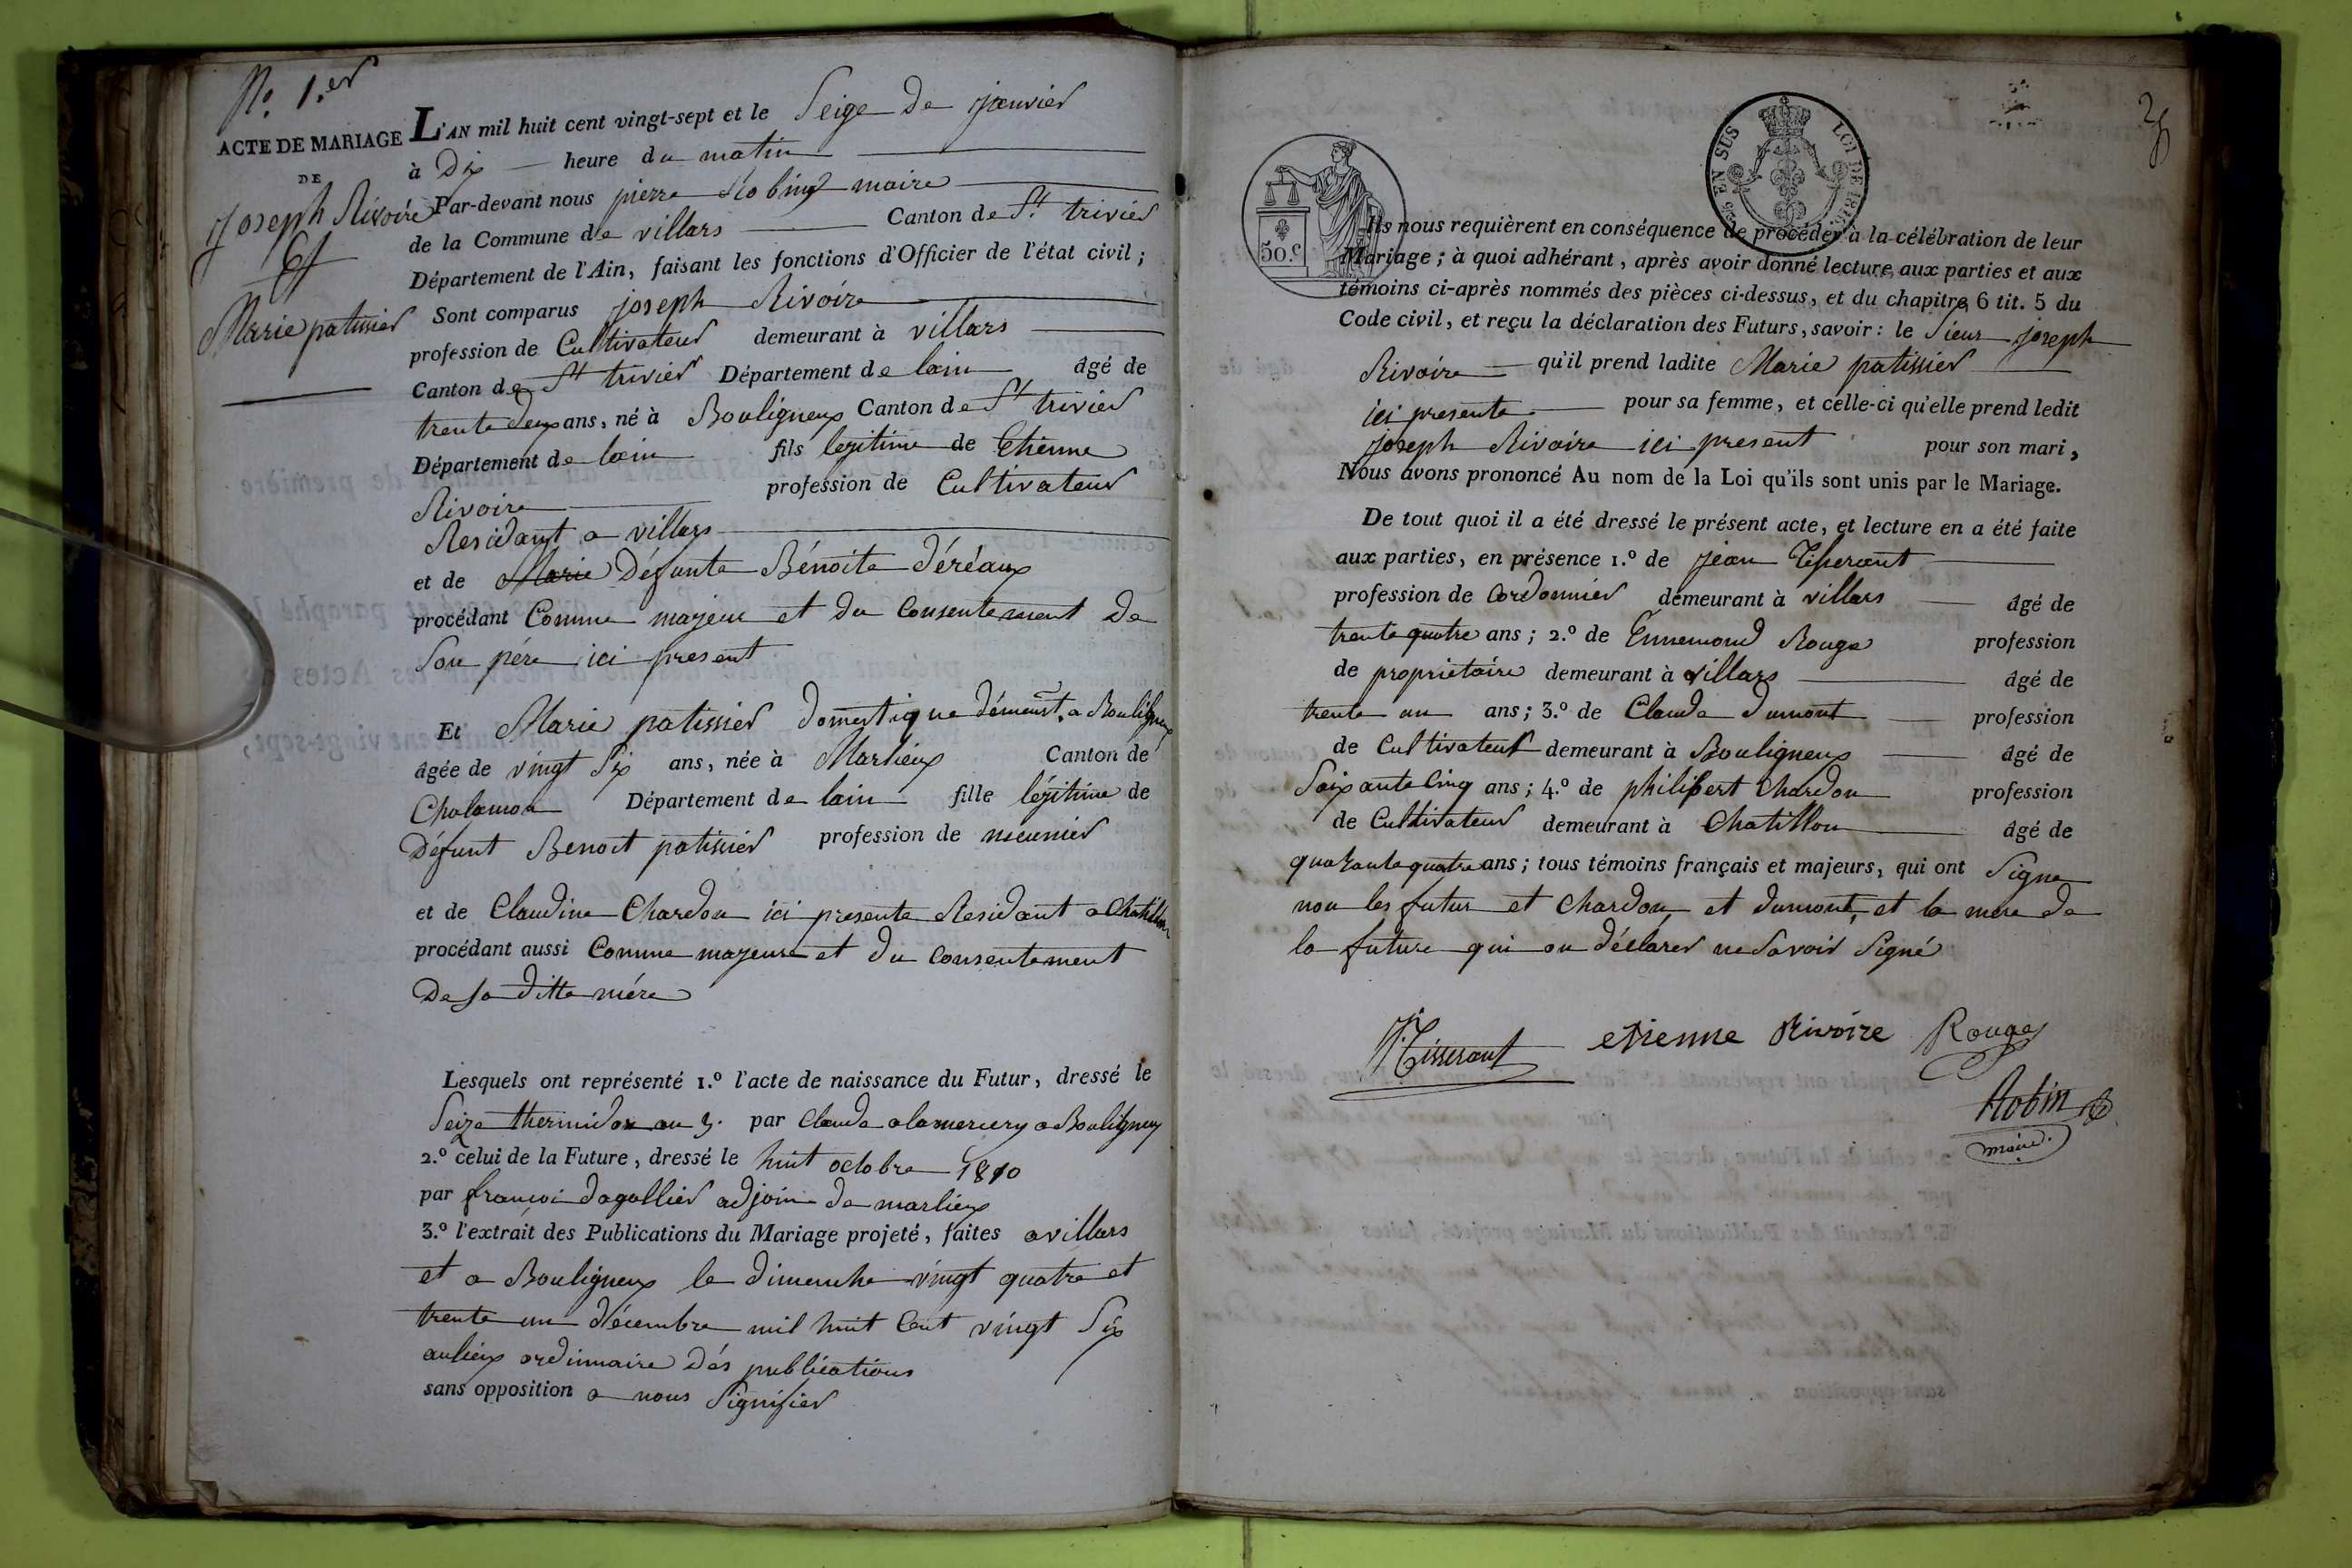 N.o 1.er
ACTE DE MARIAGE
DE
Joseph Rivoire
Et
Marie patissier
L'AN mil huit cent vingt-sept et le Seize de Janvier
à Dix heure du matin
Par-devant nous pierre Robin maire
de la Commune de villars Canton de St trivier
Département de l'Ain, faisant les fonctions d'Officier de l'état civil;
Sont comparus joseph Rivoire
profession de Cultivateur demeurant à villars
Canton de St trivier Département de lain âgé de
trente deux ans, né à Bouligneux Canton de St trivier
Département de lain fils legitime de Etienne
Rivoire profession de Cultivateur
Residant a villars
et de Marie Défunte Bénoite Déréaux
procédant Comme majeur et du Consentement De
Son pére ici present
Et Marie patissier Domestique démeurt. a Bouligneux
âgée de vingt Six ans, née à Marlieux Canton de
Chalamon Département de lain fille légitime de
Défunt Benoit patissier profession de meunier
et de Claudine Chardon ici presente Residant a Chatillon
procédant aussi Comme majeure et du Consentement
De sa ditte mére
Lesquels ont représenté 1.o l'acte de naissance du Futur, dressé le
Seize thermidor an 3. par Claude alamercery a Bouligneux
2.o celui de la Future, dressé le huit octobre 1810
par françoi dagallier adjoin de marlieux
3.o l'extrait des Publications du Mariage projeté, faites a villars
et a Bouligneux le dimenche vingt quatre et
trente un décembre mil huit Cent vingt Six
aulieux ordinnaire dés publications
sans opposition a nous Signifier
50.c
EN SUS
LOI DE 1816
Ils nous requièrent en conséquence de procéder à la célébration de leur
Mariage; à quoi adhérant, après avoir donné lecture aux parties et aux
témoins ci-après nommés des pièces ci-dessus, et du chapitre 6 tit. 5 du
Code civil, et reçu la déclaration des Futurs, savoir: le Sieur Joseph
Rivoire qu'il prend ladite Marie patissier
ici presente pour sa femme, et celle-ci qu'elle prend ledit
Joseph Rivoire ici present pour son mari,
Nous avons prononcé Au nom de la Loi qu'ils sont unis par le Mariage.
De tout quoi il a été dressé le présent acte, et lecture en a été faite
aux parties, en présence 1.o de jean Tisserant
profession de Cordonnier demeurant à villars âgé de
trente quatre ans; 2.o de Ennemond Rouge profession
de proprietaire demeurant à villars âgé de
trente un ans; 3.o de Claude dumont profession
de Cultivateur demeurant à Bouligneux âgé de
Soixante Cinq ans; 4.o de philibert Chardon profession
de Cultivateur demeurant à Chatillon âgé de
quarante quatre ans; tous témoins français et majeurs, qui ont Signe
non les futur et Chardon, et dumont, et la mere de
la future qui on déclarer ne Savoir Signé
Tisserant etienne Rivoire Rouge
Robin
maire.